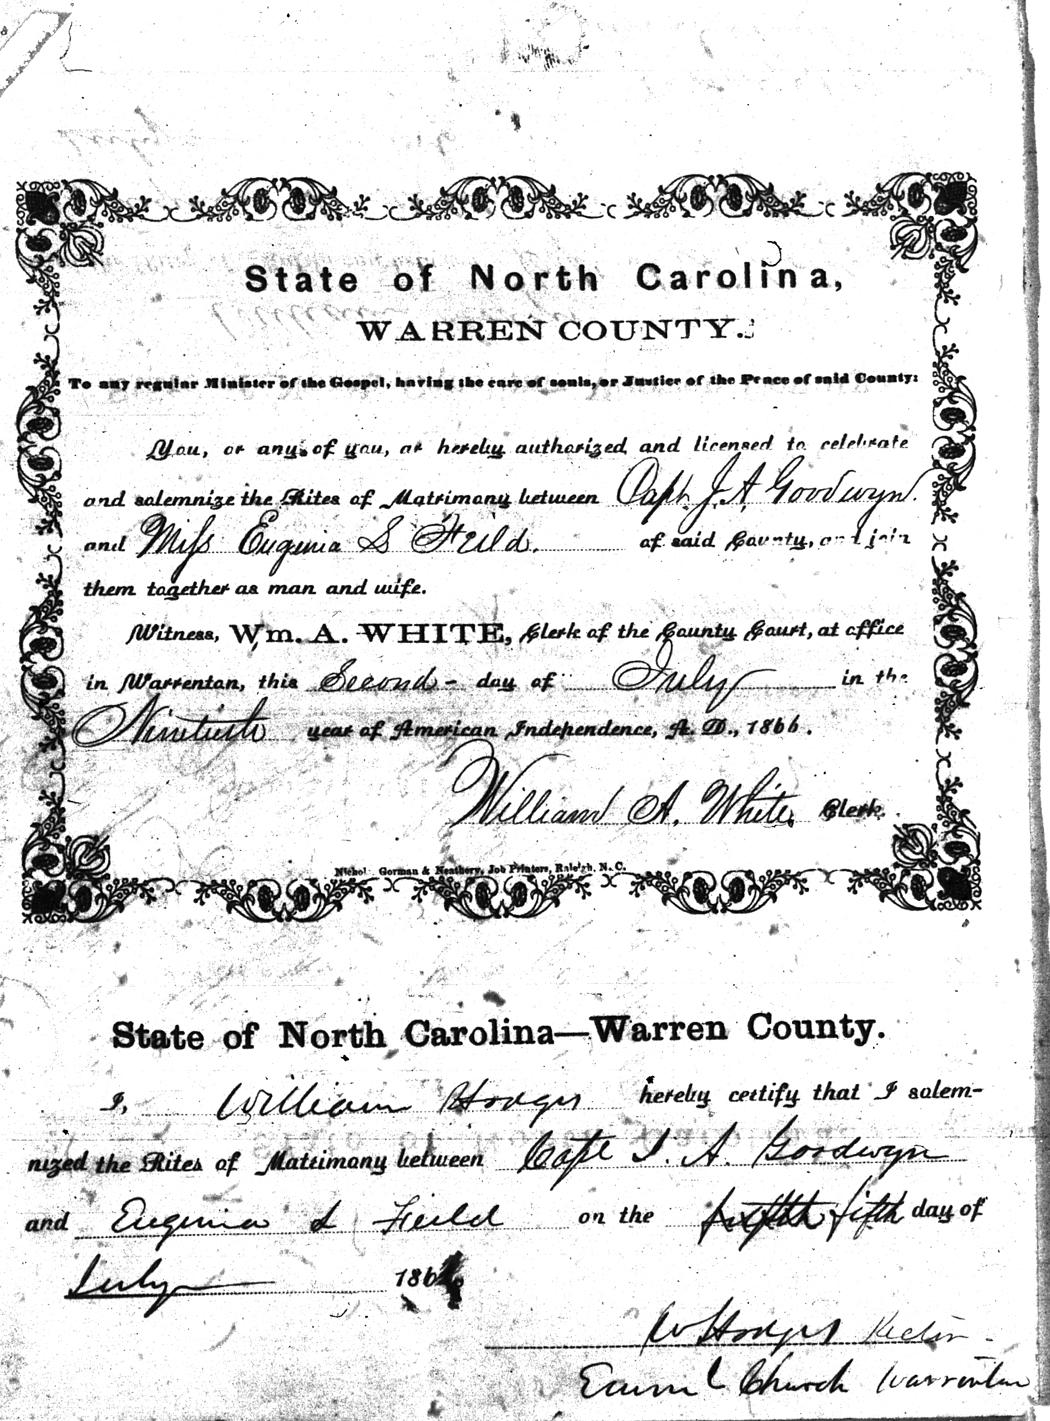 State of North Carolina,
WARREN COUNTY.
To any regular Minister of the Gospel, having the care of souls, or Justice of the Peace of said County:
You, or any of you, are hereby authorized and licensed to celebrate
and solemnize the Rites of Matrimony between Capt. J. A. Goodwyn.
and Miss Eugenia S Feild. of said County, and join
them together as man and wife.
Witness, Wm. A. WHITE, Clerk of the County Court, at office
in Warrenton, this Second - day of July in the
Ninetieth year of American Independence, A. D., 1866.
William A. White Clerk.
Nichols Gorman & Neathery, Job Printers, Raleigh, N. C.
State of North Carolina—Warren County.
I, William Hodges hereby certify that I solem-
nized the Rites of Matrimony between Capt J. A. Goodwyn
and Eugenia S Feild on the fifth day of
July 186
W Hodges Rector
Church Warrenton